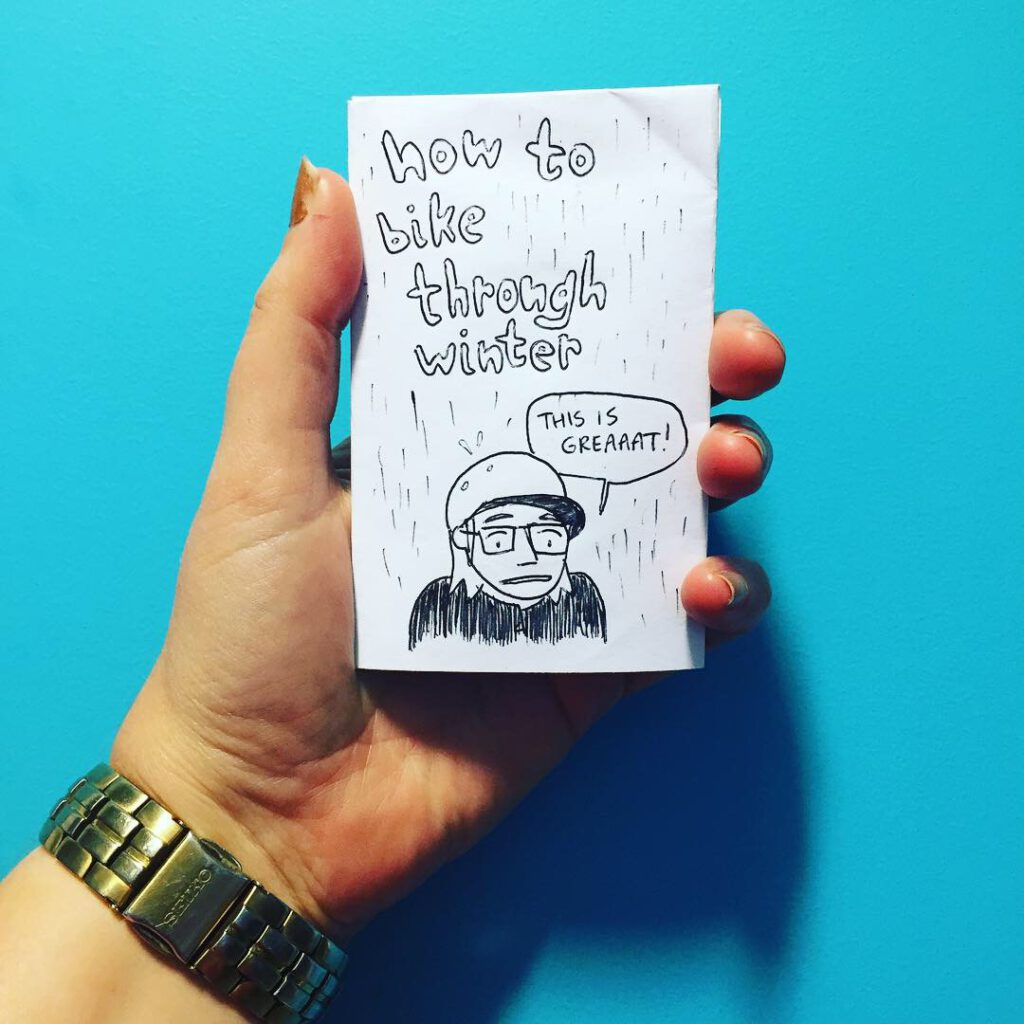 how to
bike
through
winter
THIS IS
GREAAAT!
SEIKO